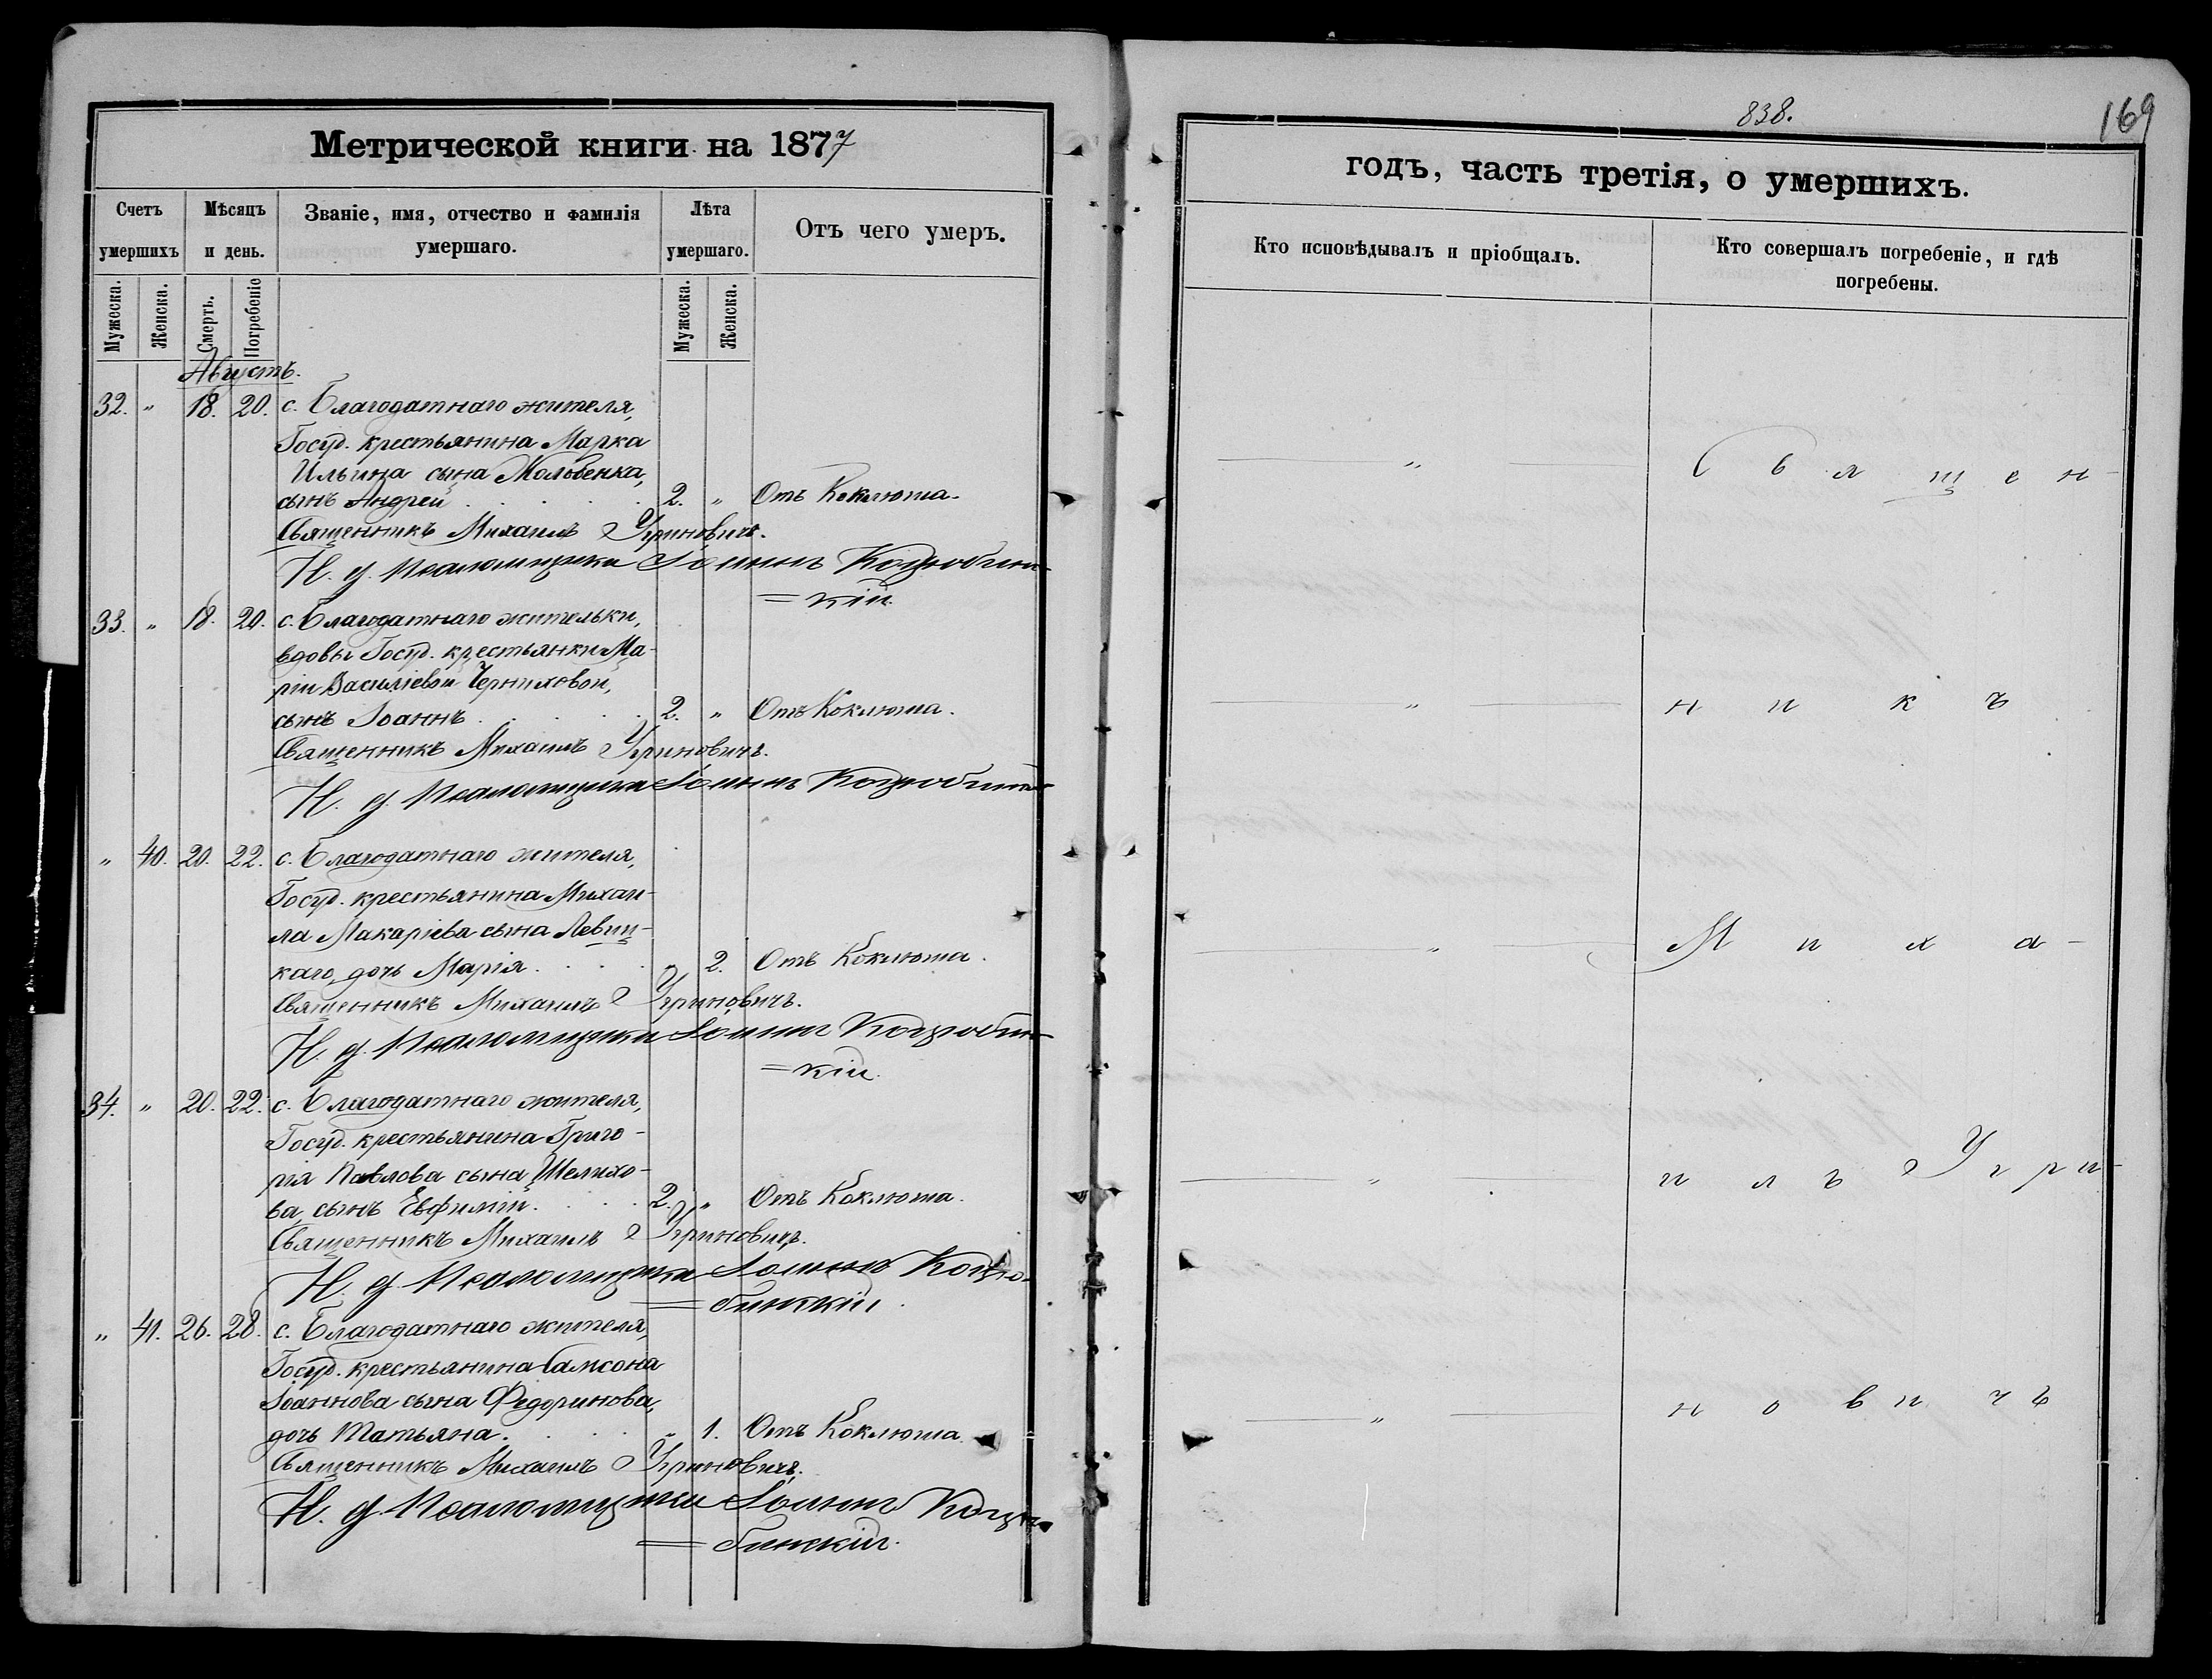 Метрической книги на 1877
Счетъ умершихъ
Мѣсяцъ и день.
Званіе, имя, отчество и фамилія умершаго.
Лѣта умершаго.
Отъ чего умеръ.
Мужеска.
Женска.
Смерть.
Погребеніе
Мужеска.
Женска.
Августъ.
32. " 18. 20. с. Благодатнаго жителя,
Госуд. крестьянина Марка
Ильина сына
сынъ Андрей 2. " Отъ Коклюша.
Священникъ Михаилъ Угриновичъ.
И. д. Псаломщика Іоаннъ Коцюбин-
=кій.
33. " 18. 20. с. Благодатнаго жительки,
вдовы Госуд. крестьянки Ма-
ріи Василіевой Черниховой,
сынъ Іоаннъ 2. " Отъ Коклюша.
Священникъ Михаилъ Угриновичъ.
И. д. Псаломщика Іоаннъ
" 40. 20. 22. с. Благодатнаго жителя,
Госуд. крестьянина Михаи-
ла Макаріева сына Левиц-
каго, дочь Марія " 2. Отъ Коклюша.
Священникъ Михаилъ Угриновичъ.
И. д. Псаломщика Іоаннъ Коцюбин-
=кій.
34. " 20. 22. с. Благодатнаго жителя,
Госуд. крестьянина Григо-
рія Павлова сына Шелихо-
ва, сынъ Евфимій 2. " Отъ Коклюша.
Священникъ Михаилъ Угриновичъ.
И. д. Псаломщика Іоаннъ Коцю-
=бинскій.
" 41. 26. 28. с. Благодатнаго жителя,
Госуд. крестьянина Самсона
Іоаннова сына Федоринова,
дочь Татьяна. " 1. Отъ Коклюша.
Священникъ Михаилъ Угриновичъ.
И. д. Псаломщика Іоаннъ Коцю-
=бинскій.
838.
169
годъ, часть третія, о умершихъ.
Кто исповѣдывалъ и пріобщалъ.
Кто совершалъ погребеніе, и гдѣ
погребены.
" Священ-
" никъ
" Миха-
" илъ Угри-
" новичъ